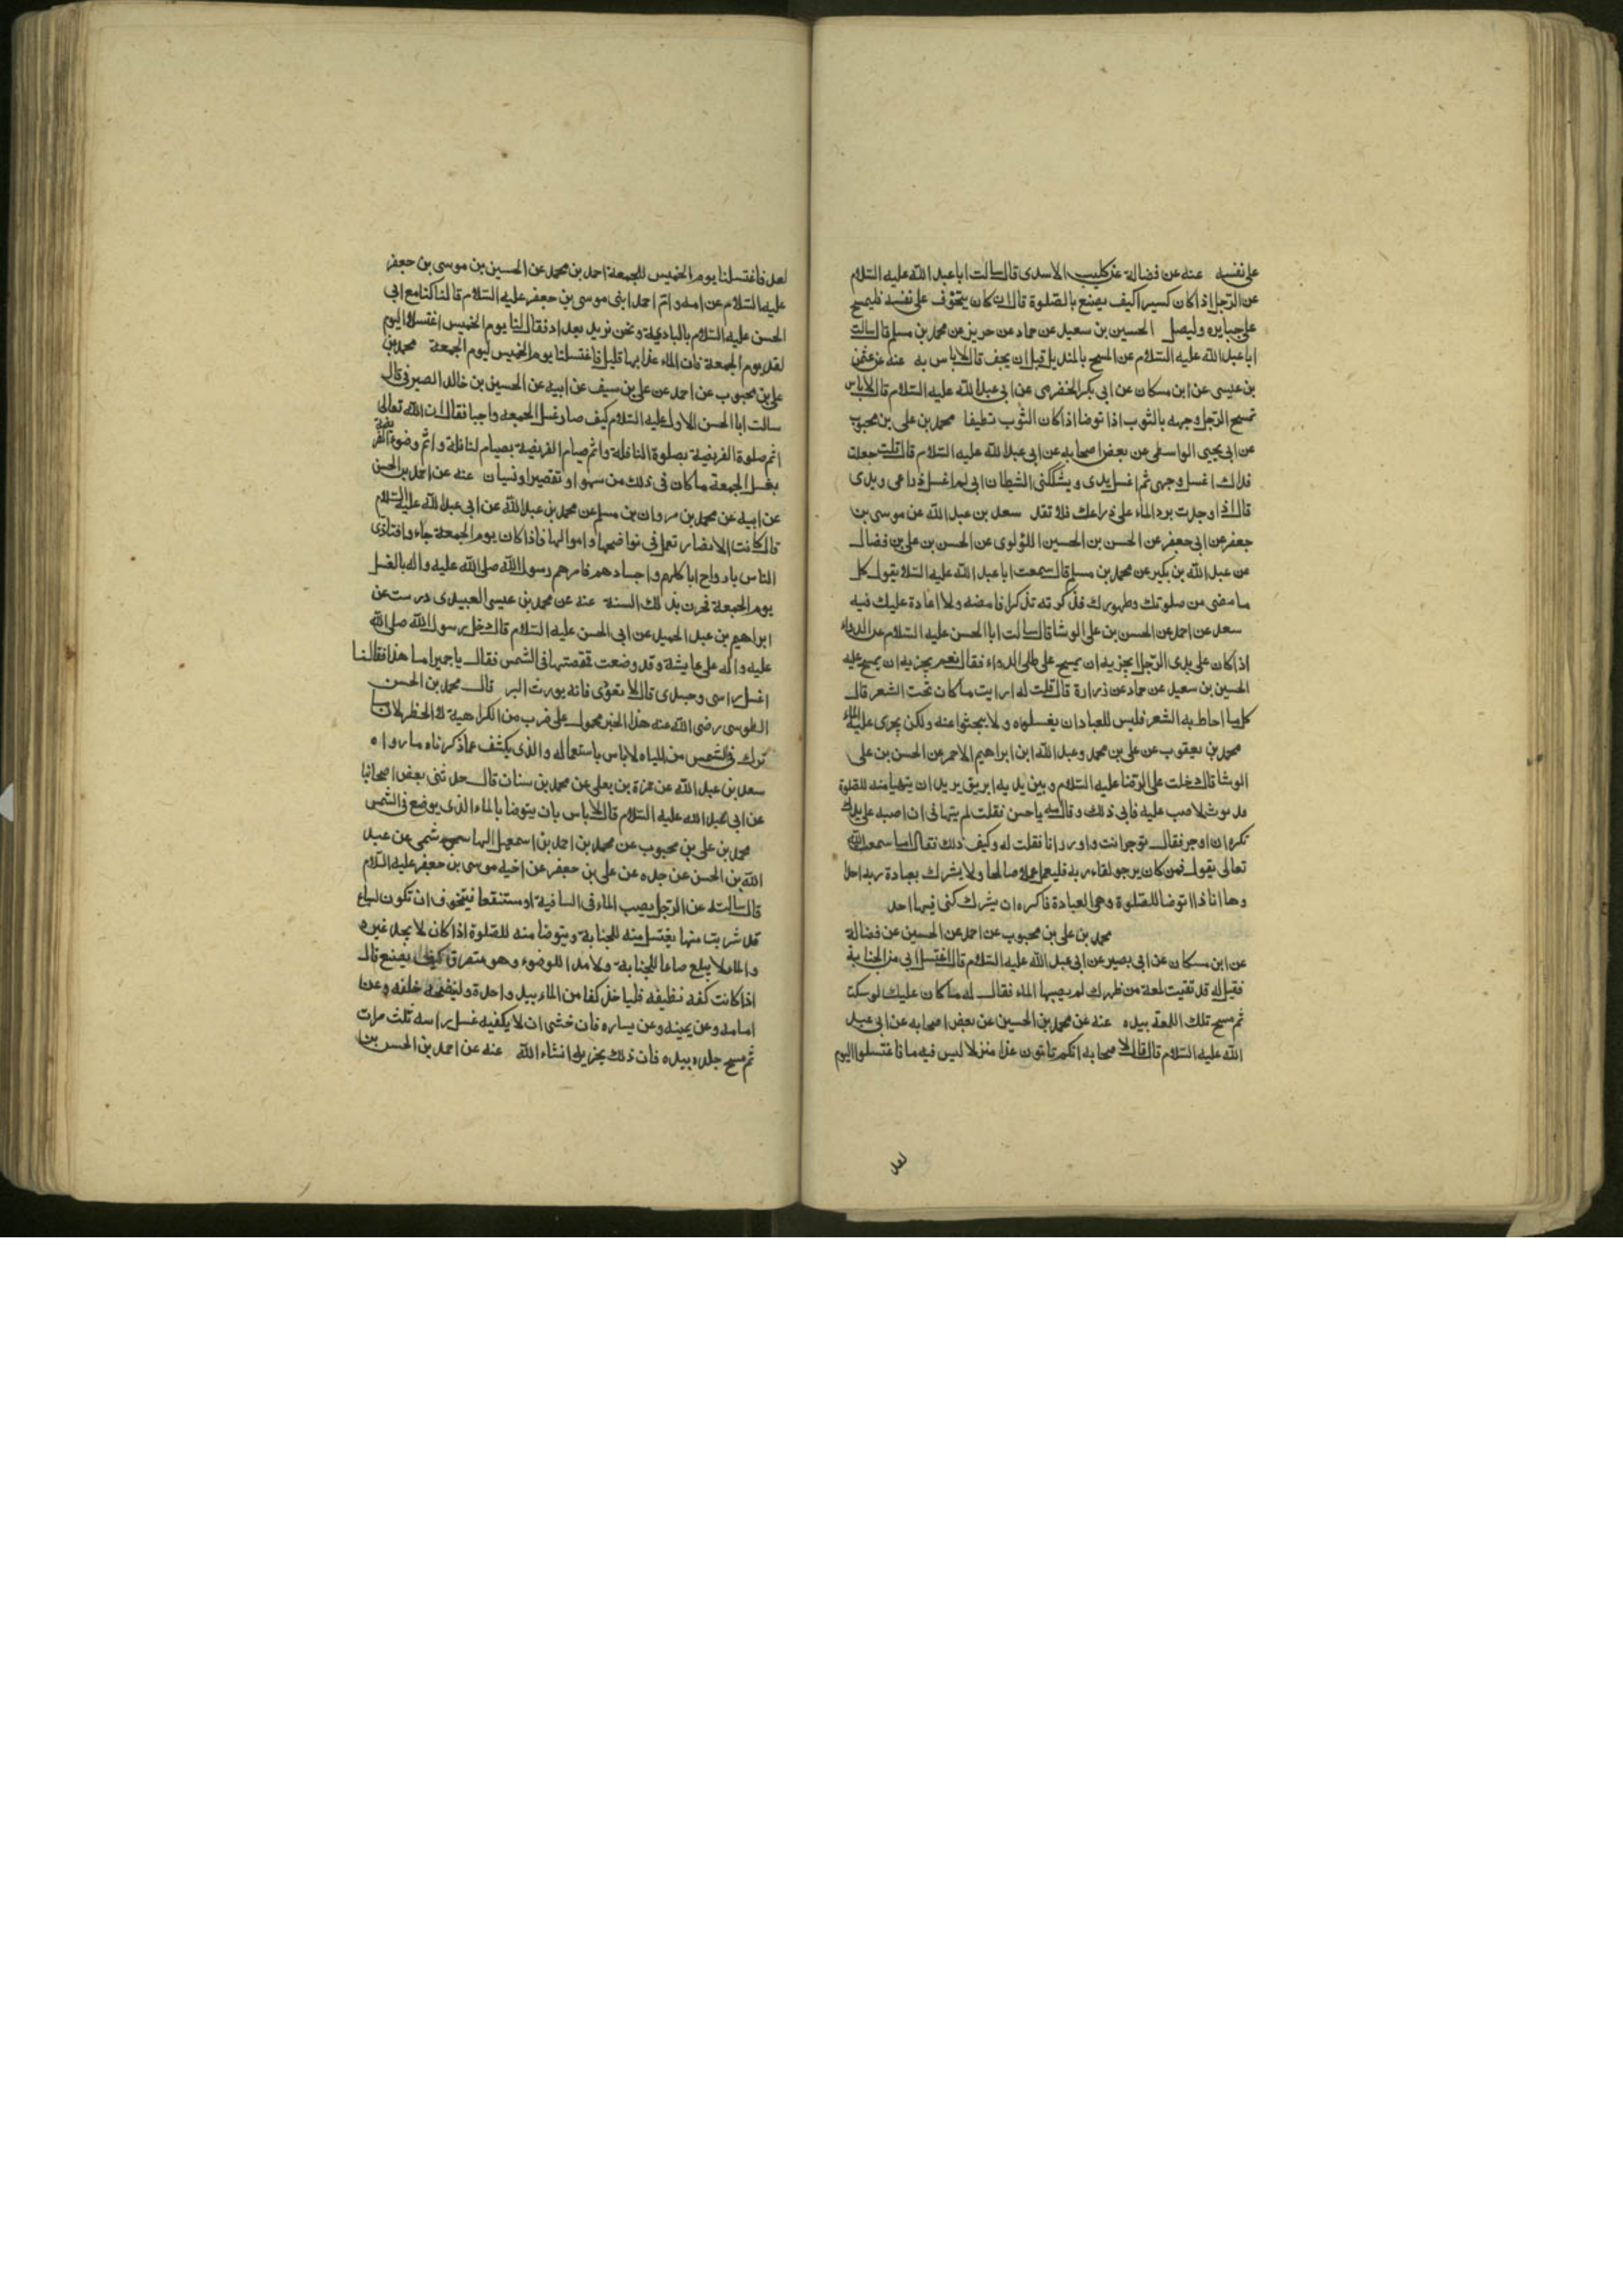 على نفسه عنه عن فضالة عن كليب الاسدى قال سالت ابا عبد الله عليه السّلام
عن الرّجل اذا كان كسيرا كيف يصنع بالصّلوة قال ان كان يتخوّف على نفسه فليمسح
على جبايره وليصل الحسين بن سعيد عن حماد عن حريز عن محمد بن مسلم قال سالت
ابا عبد الله عليه السّلام عن المسح بالمنديل قبل ان يجف قال لا باس به عنه عن عثمن
بن عيسى عن ابن مسكان عن ابى بكر الحضرمى عن ابى عبد الله عليه السّلام قال لا باس
تمسح الرّجل وجهه بالثوب اذا توضا اذا كان الثّوب نظيفا محمد بن على بن محبوب
عن ابى يحيى الواسطى عن بعض اصحابه عن ابى عبد الله عليه السّلام قال قلت جعلت
فداك اغسل وجهى ثم اغسل يدى ويشككنى الشيطان انى لم اغسل ذراعى ويدى
قال اذا وجدت برد الماء على ذراعك فلا تعد سعد بن عبد الله عن موسى بن
جعفر عن ابى جعفر عن الحسن بن الحسين اللؤلوى عن الحسن بن على بن فضال
عن عبد الله بن بكير عن محمد بن مسلم قال سمعت ابا عبد الله عليه السّلا يقول كل
ما مضى من صلوتك وطهورك فذكرته تذكرا فامضه ولا اعادة عليك فيه
سعد عن احمد عن الحسن بن على الوشا قال سالت ابا الحسن عليه السّلام عن الدواء
اذا كان على يدى الرّجل ايجزيه ان يمسح على طلى الدواء فقال نعم يجزيه ان يمسح عليه
الحسين بن سعيد عن حماد عن زرارة قال قلت له ارايت ما كان تحت الشعر قال
كل ما احاط به الشعر فليس للعباد ان يغسلوه ولا يبحثوا عنه ولكن يجرى عليه الماء
محمد بن يعقوب عن على بن محمد وعبد الله ابن ابراهيم الاحمر عن الحسن بن على
الوشا قال دخلت على الرّضا عليه السّلام وبين يديه ابريق يريد ان يتهيا منه للصّلوة
فدنوت لاصب عليه فابى ذلك وقال مه يا حسن فقلت لم تنهانى ان اصبه على يدك
تكره ان اوجر فقال توجر انت واوزر انا فقلت له وكيف ذلك فقال اما سمعت الله
تعالى يقول فمن كان يرجو لقاء ربه فليعمل عملا صالحا ولا يشرك بعبادة ربه احدا
وها انا ذا اتوضا للصّلوة وهى العبادة فاكره ان يشركنى فيها احد
محمد بن على بن محبوب عن احمد عن الحسين عن فضالة
عن ابن مسكان عن ابى بصير عن ابى عبد الله عليه السّلام قال اغتسل ابى من الجنابة
فقيل له قد تقيت لمعة من ظهرك لم يصبها الماء فقال له ما كان عليك لو سكت
ثم مسح تلك اللمعة بيده عنه عن محمد بن الحسين عن بعض اصحابه عن ابى عبد
الله عليه السّلام قال قال لاصحابه انكم تاتون غدا منزلا ليس فيه ما فاغتسلوا اليوم
لغد
لغد فاغتسلنا يوم الخميس للجمعة احمد بن محمد عن الحسين بن موسى بن جعفر
عليه السّلام عن امه وام احمد ابنى موسى بن جعفر عليه السّلام قالنا كنا مع ابى
الحسن عليه السّلام بالبادية ونحن نريد بغداد فقال لنا يوم الخميس اغتسلا اليوم
لغد يوم الجمعة فان الماء غدا بها قليل فاغتسلنا يوم الخميس ليوم الجمعة محمد بن
على بن محبوب عن احمد عن على بن سيف عن ابيه عن الحسين بن خالد الصيرفى قال
سالت ابا الحسن الاول عليه السّلام كيف صار غسل الجمعة واجبا فقال ان الله تعالى
اتم صلوة الفريضة بصلوة النافلة واتم صيام الفريضة بصيام لنافلة واتم وضوء الفريضة
بغسل الجمعة ما كان فى ذلك من سهو او تقصير او نسيان عنه عن احمد بن الحسن
عن ابيه عن محمد بن مروان بن مسلم عن محمد بن عبد الله عن ابى عبد الله عليه السّلام
قال كانت الانصار تعمل فى نواضحها واموالها فاذا كان يوم الجمعة جاءوا فتاذى
الناس بارواح اباطهم واجسادهم فامرهم رسول الله صلى الله عليه واله بالغسل
يوم الجمعة فجرت بذلك السنة عنه عن محمد بن عيسى العبيدى درست عن
ابراهيم بن عبد الحميد عن ابى الحسن عليه السّلام قال دخل رسول الله صلى الله
عليه واله على عايشة وقد وضعت قمقمتها فى الشمس فقال يا حميرا ما هذا فقالنا
اغسل راسى وجسدى قال لا تعودى فانه يورث البر قال محمد بن الحسن
الطوسى رضى الله عنه هذا الخبر محمول على ضرب من الكراهية ك الحظر لان ما
ترك فى الشمس من المياه لاباس باستعماله والذى يكشف عما ذكرناه ما رواه
سعد بن عبد الله عن حمزة بن يعلى عن محمد بن سنان قال حدثنى بعض اصحابنا
عن ابى عبد الله عليه السّلام قال لا باس بان يتوضا بالماء الذى يوضع فى الشمس
محمد بن على بن محبوب عن محمد بن احمد بن اسمعيل الهاشمى عن عبد
الله بن الحسن عن جده عن على بن جعفر عن اخيه موسى بن جعفر عليه السّلام
قال سالته عن الرّجل يصب الماء فى الساقية او مستنقعا فيتخوف ان تكون لسباع
قد شربت منها يغتسل منه للجنابة ويتوضا منه للصّلوة اذا كان لا يجد غيره
والماء لا يبلغ صاعا للجنابة ولا مدا للوضوء وهو متفرق كيف يصنع قال
اذا كانت كفه نظيفه فلياخذ كفا من الماء بيد واحدة ولينضحه خلفه وعن
امامه وعن يمينه وعن يساره فان خشى ان لا يكفيه غسل راسه ثلث مرات
ثم مسح جلده بيده فان ذلك يجزيه انشاء الله عنه عن احمد بن الحسن بن